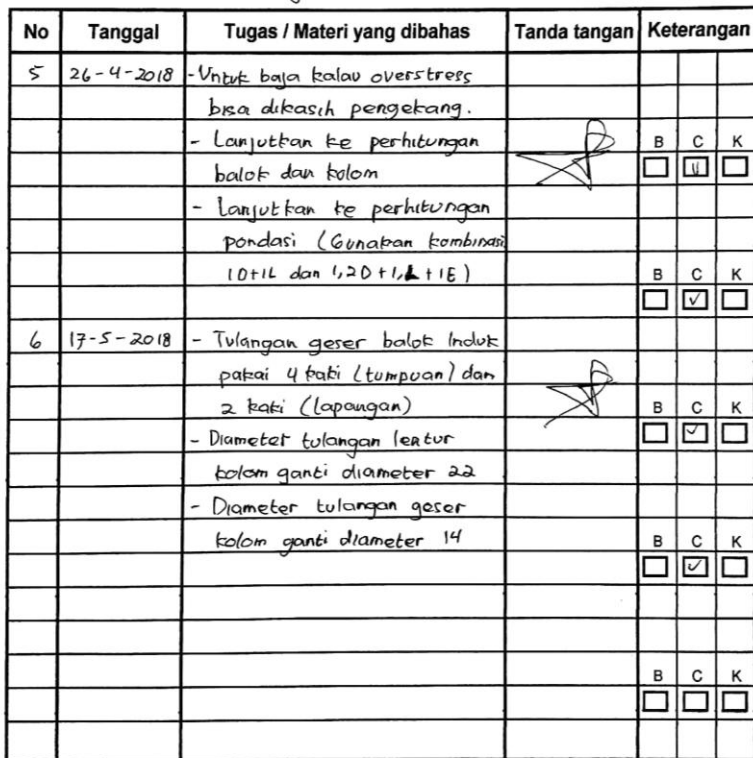 No Tanggal Tugas / Materi yang dibahas Tanda tangan Keterangan
5 26-4-2018 - Untuk baja kalau overstress
bisa dikasih pengekang.
- Lanjutkan ke perhitungan B C K
balok dan kolom
- Lanjutkan ke perhitungan
pondasi (Gunakan kombinasi
1D+1L dan 1,2D+1,L+1E) B C K
6 17-5-2018 - Tulangan geser balok Induk
pakai 4 kaki (tumpuan) dan
2 kaki (lapangan) B C K
- Diameter tulangan lentur
kolom ganti diameter 22
- Diameter tulangan geser
kolom ganti diameter 14 B C K
B C K